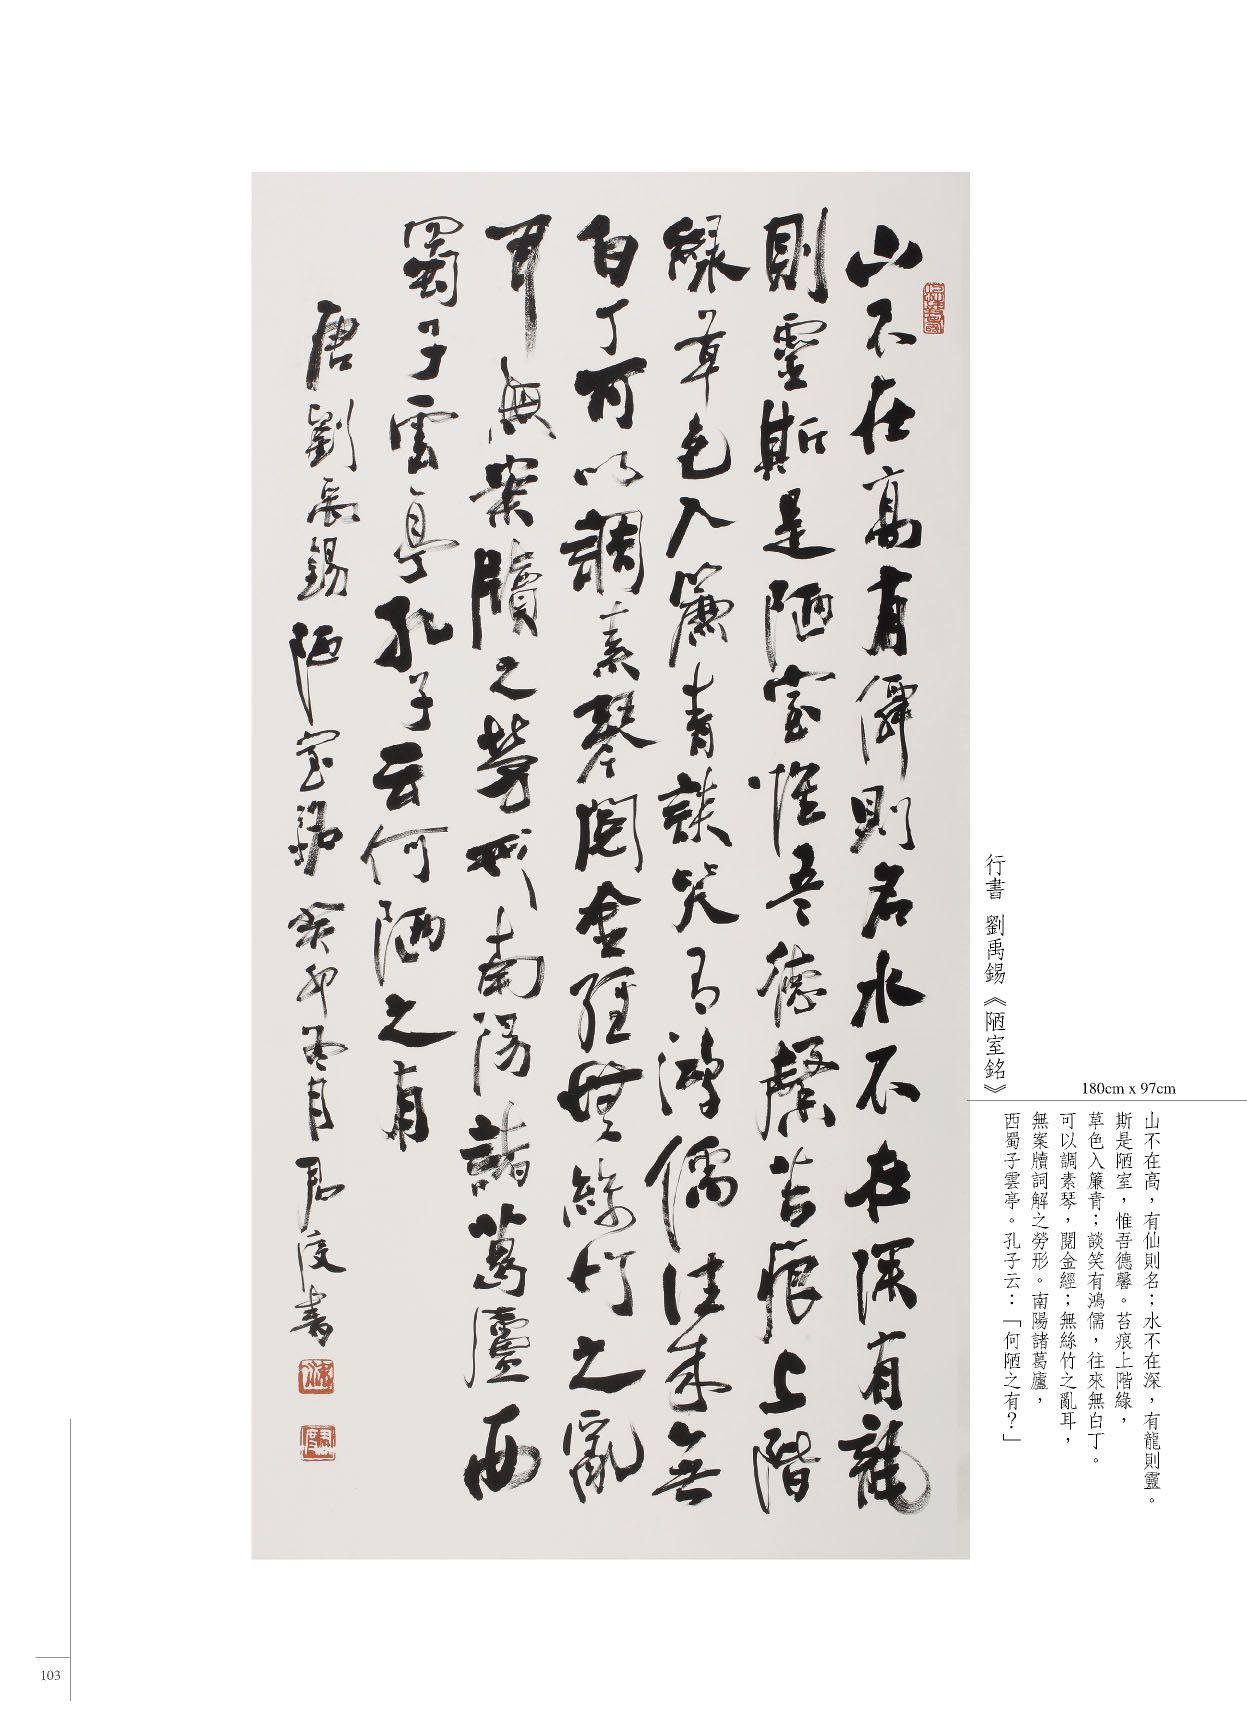 行書 劉禹錫《陋室銘》
180cm x 97cm
山不在高，有仙則名；水不在深，有龍則靈。
斯是陋室，惟吾德馨。苔痕上階綠，
草色入簾青；談笑有鴻儒，往來無白丁。
可以調素琴，閱金經；無絲竹之亂耳，
無案牘詞解之勞形。南陽諸葛廬，
西蜀子雲亭。孔子云：「何陋之有？」
山不在高有僊則名水不在深有龍
則靈斯是陋室惟吾德馨苔痕上階
綠草色入簾青談笑有鴻儒往來無
白丁可以調素琴閱金經無絲竹之亂
耳無案牘之勞形南陽諸葛廬西
蜀子雲亭孔子云何陋之有
唐劉禹錫陋室銘癸卯月君度書
103